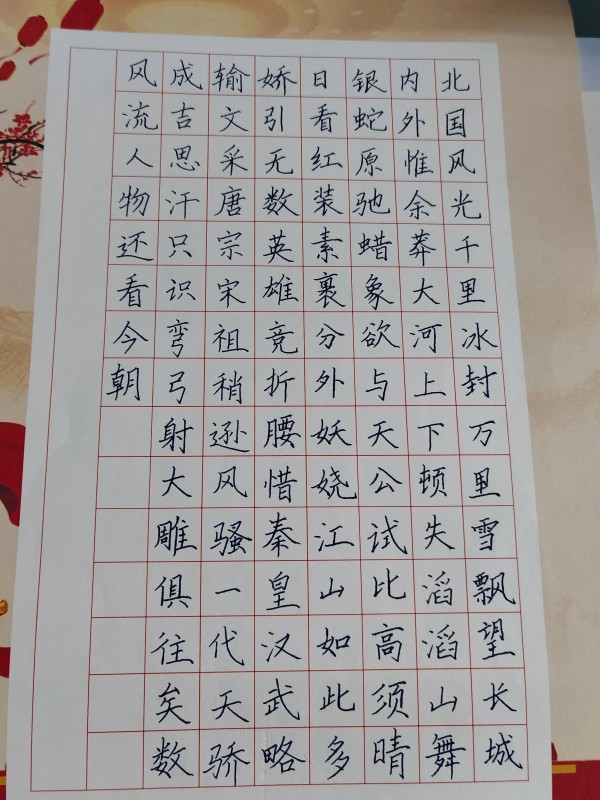 北国风光千里冰封万里雪飘望长城
内外惟余莽大河上下顿失滔滔山舞
银蛇原驰蜡象欲与天公试比高须晴
日看红装素裹分外妖娆江山如此多
娇引无数英雄竞折腰惜秦皇汉武略
输文采唐宗宋祖稍逊风骚一代天骄
成吉思汗只识弯弓射大雕俱往矣数
风流人物还看今朝